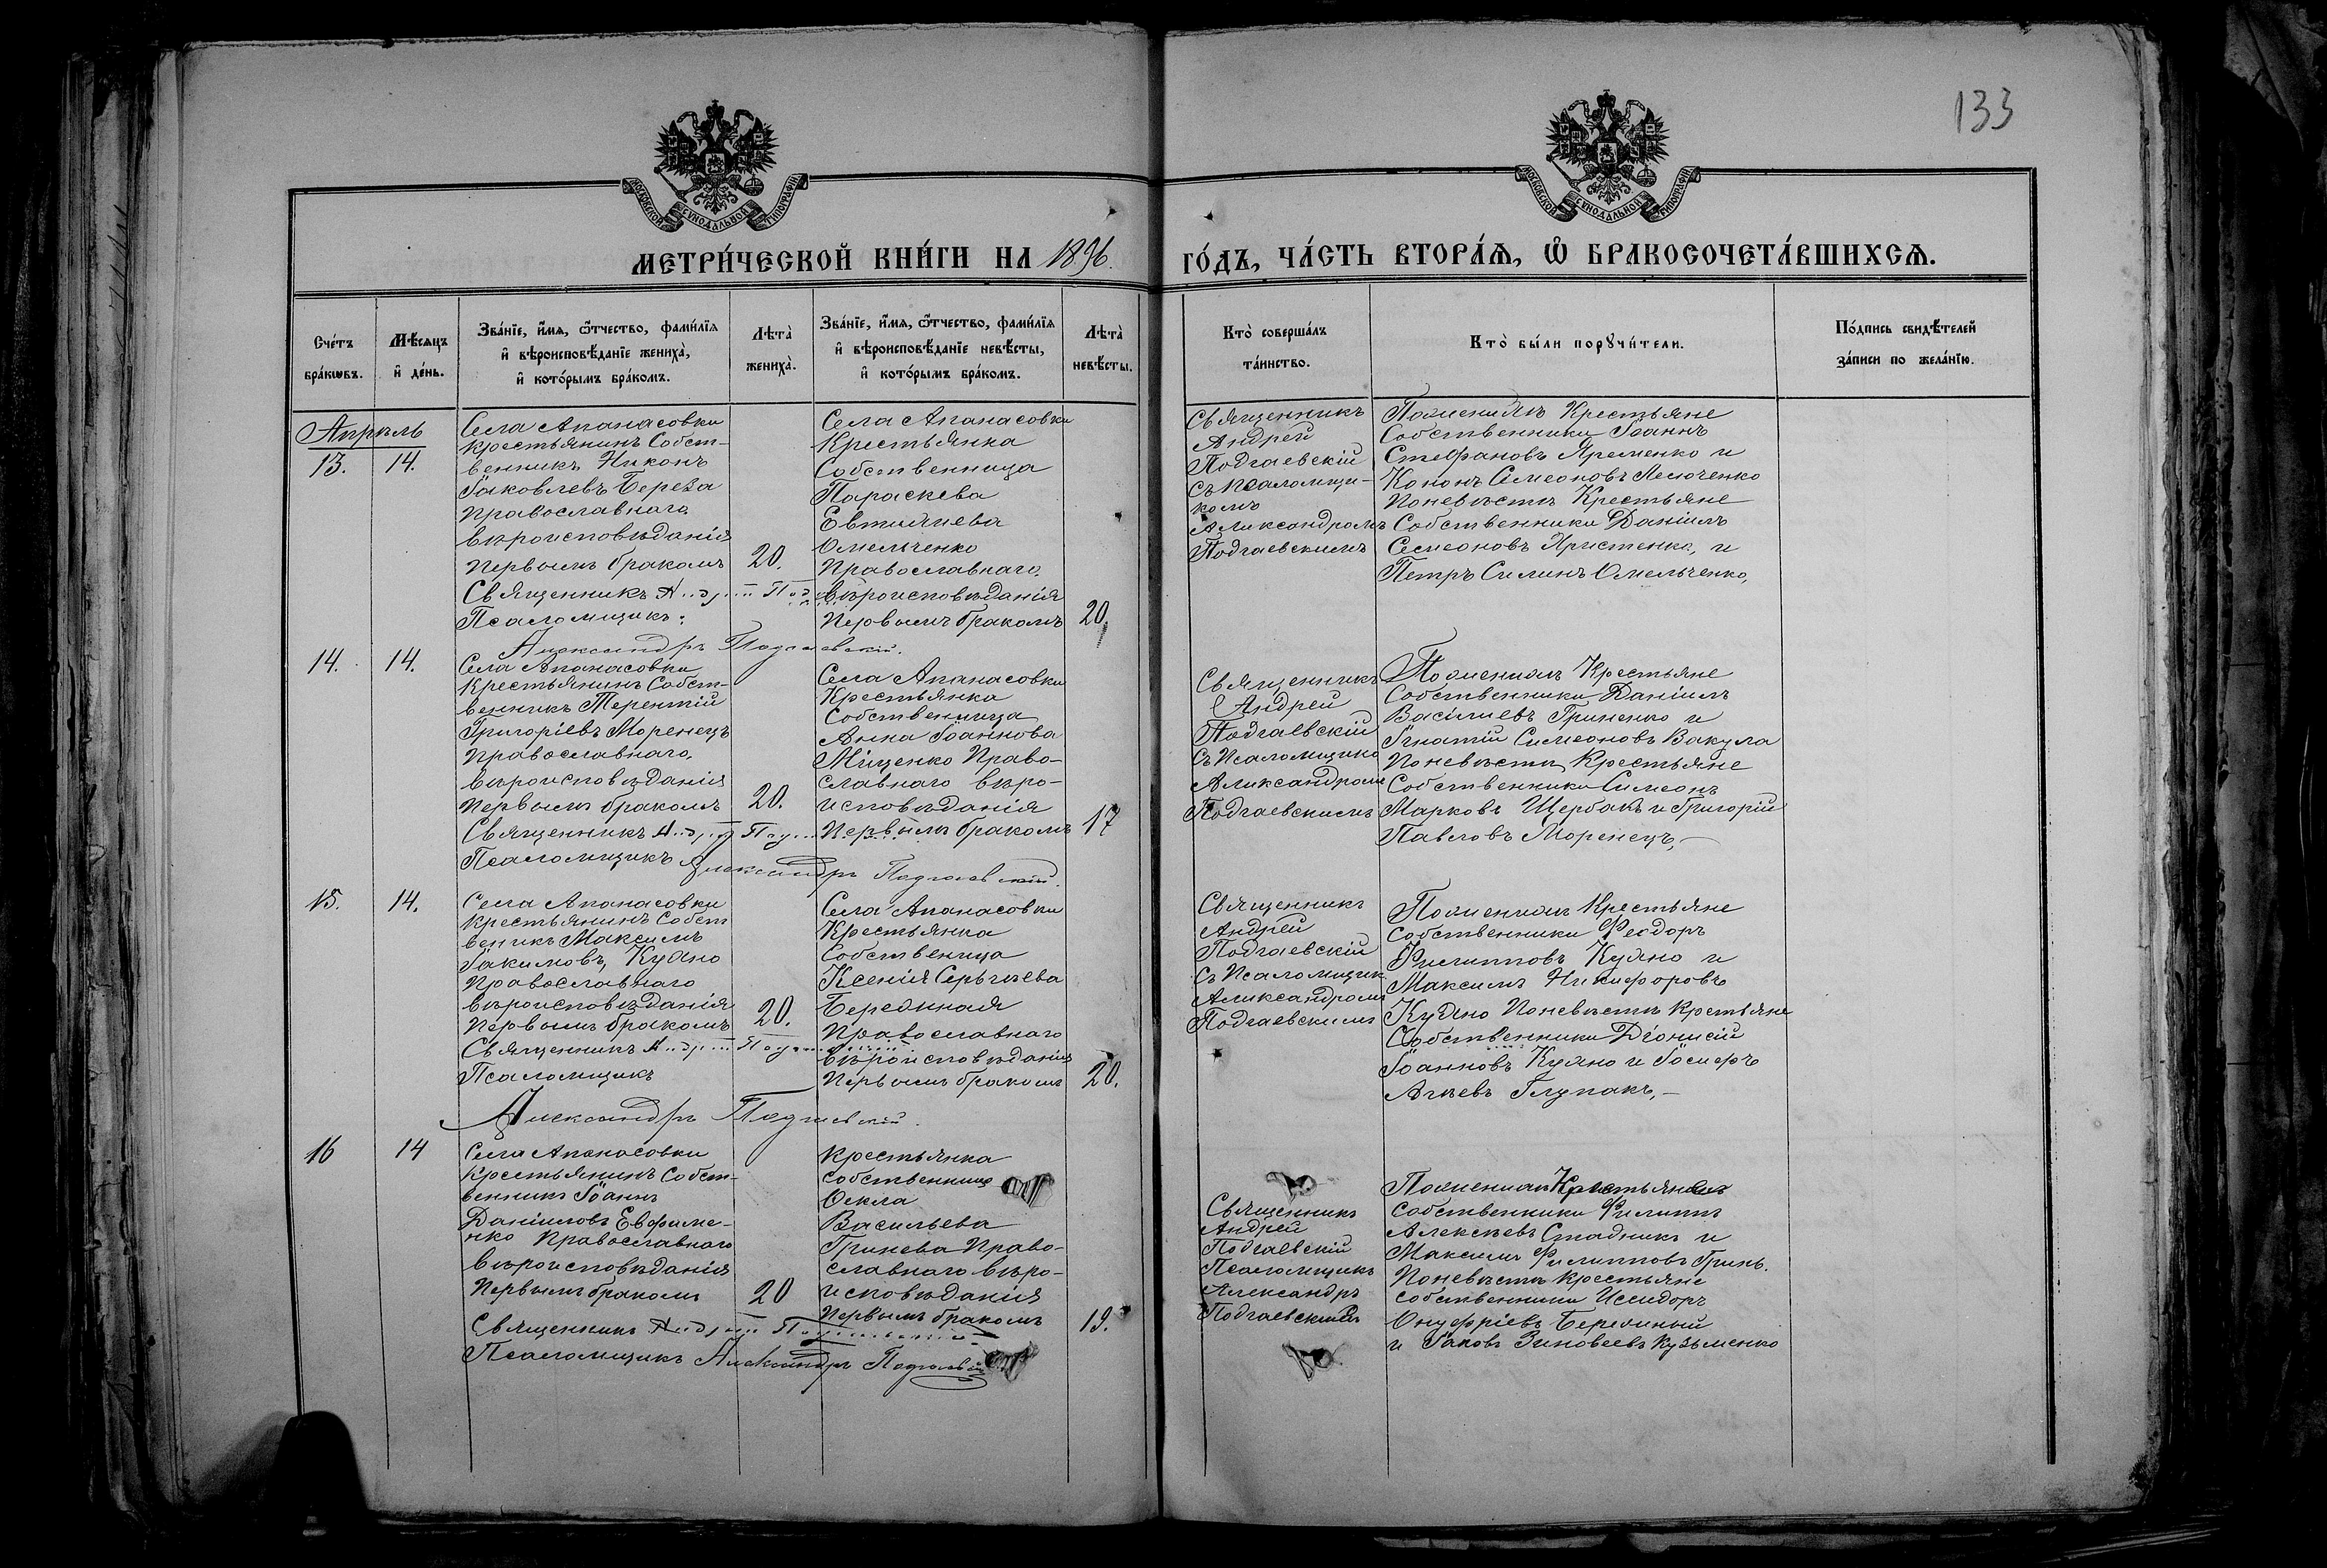 133
МОСКОВСКОЙ СѴНОДАЛЬНОЙ ТИПОГРАФІИ
МОСКОВСКОЙ СѴНОДАЛЬНОЙ ТИПОГРАФІИ
МЕТРИ́ЧЕСКОЙ КНИ́ГИ НА 1896. ГО́ДЪ, ЧА́СТЬ ВТОРА́Ѧ, Ѡ҆ БРАКОСОЧЕТА́ВШИХСѦ.
Сче́тъ
бра́кѡвъ.
Мѣ́сѧцъ
и҆ де́нь.
Зва́нїе, и҆́мѧ, ѻ҆́тчество, фами́лїѧ
и҆ вѣроисповѣ́данїе жениха̀,
и҆ кото́рымъ бра́комъ.
Лѣта̀
жениха̀.
Зва́нїе, и҆́мѧ, ѻ҆́тчество, фами́лїѧ
и҆ вѣроисповѣ́данїе невѣ́сты,
и҆ кото́рымъ бра́комъ.
Лѣта̀
невѣ́сты.
Кто̀ соверша́лъ
та́инство.
Кто̀ бы́ли порꙋчи́тели.
По́дпись свидѣ́телей
за́писи по жела́нїю.
Апрѣль
13.
14.
Села Апанасовки
крестьянинъ Собст-
венникъ Никонъ
Іаковлевъ Береза
православнаго
вѣроисповѣданія
первымъ бракомъ
20.
Священникъ
Псаломщикъ:
Александръ Подгаевскій.
Села Апанасовки
Крестьянка
Собственница
Параскева
Евтихіева
Омельченко
Православнаго
вѣроисповѣданія
Первымъ бракомъ
20.
Священникъ
Андрей
Подгаевскій
съ псаломщи-
комъ
Александромъ
Подгаевскимъ
По женихѣ Крестьяне
Собственники Іоаннъ
Стефановъ Яременко и
Кононъ Симеоновъ
По невѣстѣ Крестьяне
Собственники Даніилъ
Семеоновъ Христенко, и
Петръ Силинъ Омельченко,
14.
14.
Села Апанасовки
Крестьянинъ Собст-
венникъ Терентій
Григоріевъ Моренецъ
православнаго,
вѣроисповѣданія
первымъ бракомъ
20.
Священникъ
Псаломщикъ Александръ Подгаевскій.
Села Апанасовки
Крестьянка
Собственница
Анна Іоаннова
Міщенко Право-
славнаго вѣро-
исповѣданія
Первымъ бракомъ
17
Священникъ
Андрей
Подгаевскій
съ Псаломщико
Александромъ
Подгаевскимъ
По женихѣ Крестьяне
Собственники Даніилъ
Василіевъ Гриненко и
Игнатій Симеоновъ Вакула
По невѣстѣ Крестьяне
Собственники Симеонъ
Марковъ Щербакъ и Григорій
Павловъ Моренецъ,-
15.
14.
Села Апанасовки
крестьянинъ Собст
веникъ Максимъ
Іакимовъ, Куяно
православнаго
вѣроисповѣданія
первымъ бракомъ
20.
Священникъ
Псаломщикъ
Александръ Подгаевскій.
Села Апанасовки
Крестьянка
Собственица
Ксенія Сергѣева
Православнаго
вѣроисповѣданія
первымъ бракомъ
20.
Священникъ
Андрей
Подгаевскій
съ Псаломщик
Александромъ
Подгаевскимъ
По женихѣ Крестьяне
Собственники Феодоръ
Филипповъ Куяно и
Максимъ Никифоровъ
Куяно По невѣстѣ крестьяне
Собственники Діонисій
Іоанновъ Куяно и Іосифъ
Глупакъ,-
16
14
Села Апанасовки
крестьянинъ Собст-
венникъ Іоаннъ
Даніиловъ Евфиме-
нко православнаго
вѣроисповѣданія
Первымъ бракомъ
20
Священникъ
Псаломщикъ Александръ Подгаевскій
крестьянка
собственница
Ѳекла
Васильева
Гринева Право-
славнаго вѣро-
исповѣданія
Первымъ бракомъ
19.
Священникъ
Андрей
Подгаевскій
Псаломщикъ
Александръ
Подгаевскій
По женихѣ Крестьяне
Собственники Филиппъ
Алексѣевъ Стадникъ и
Максимъ Филипповъ Гринь.
По невѣстѣ крестьяне
собственники Исидоръ
Онуфріевъ
и Іаковъ Зиновеевъ Кузьменко